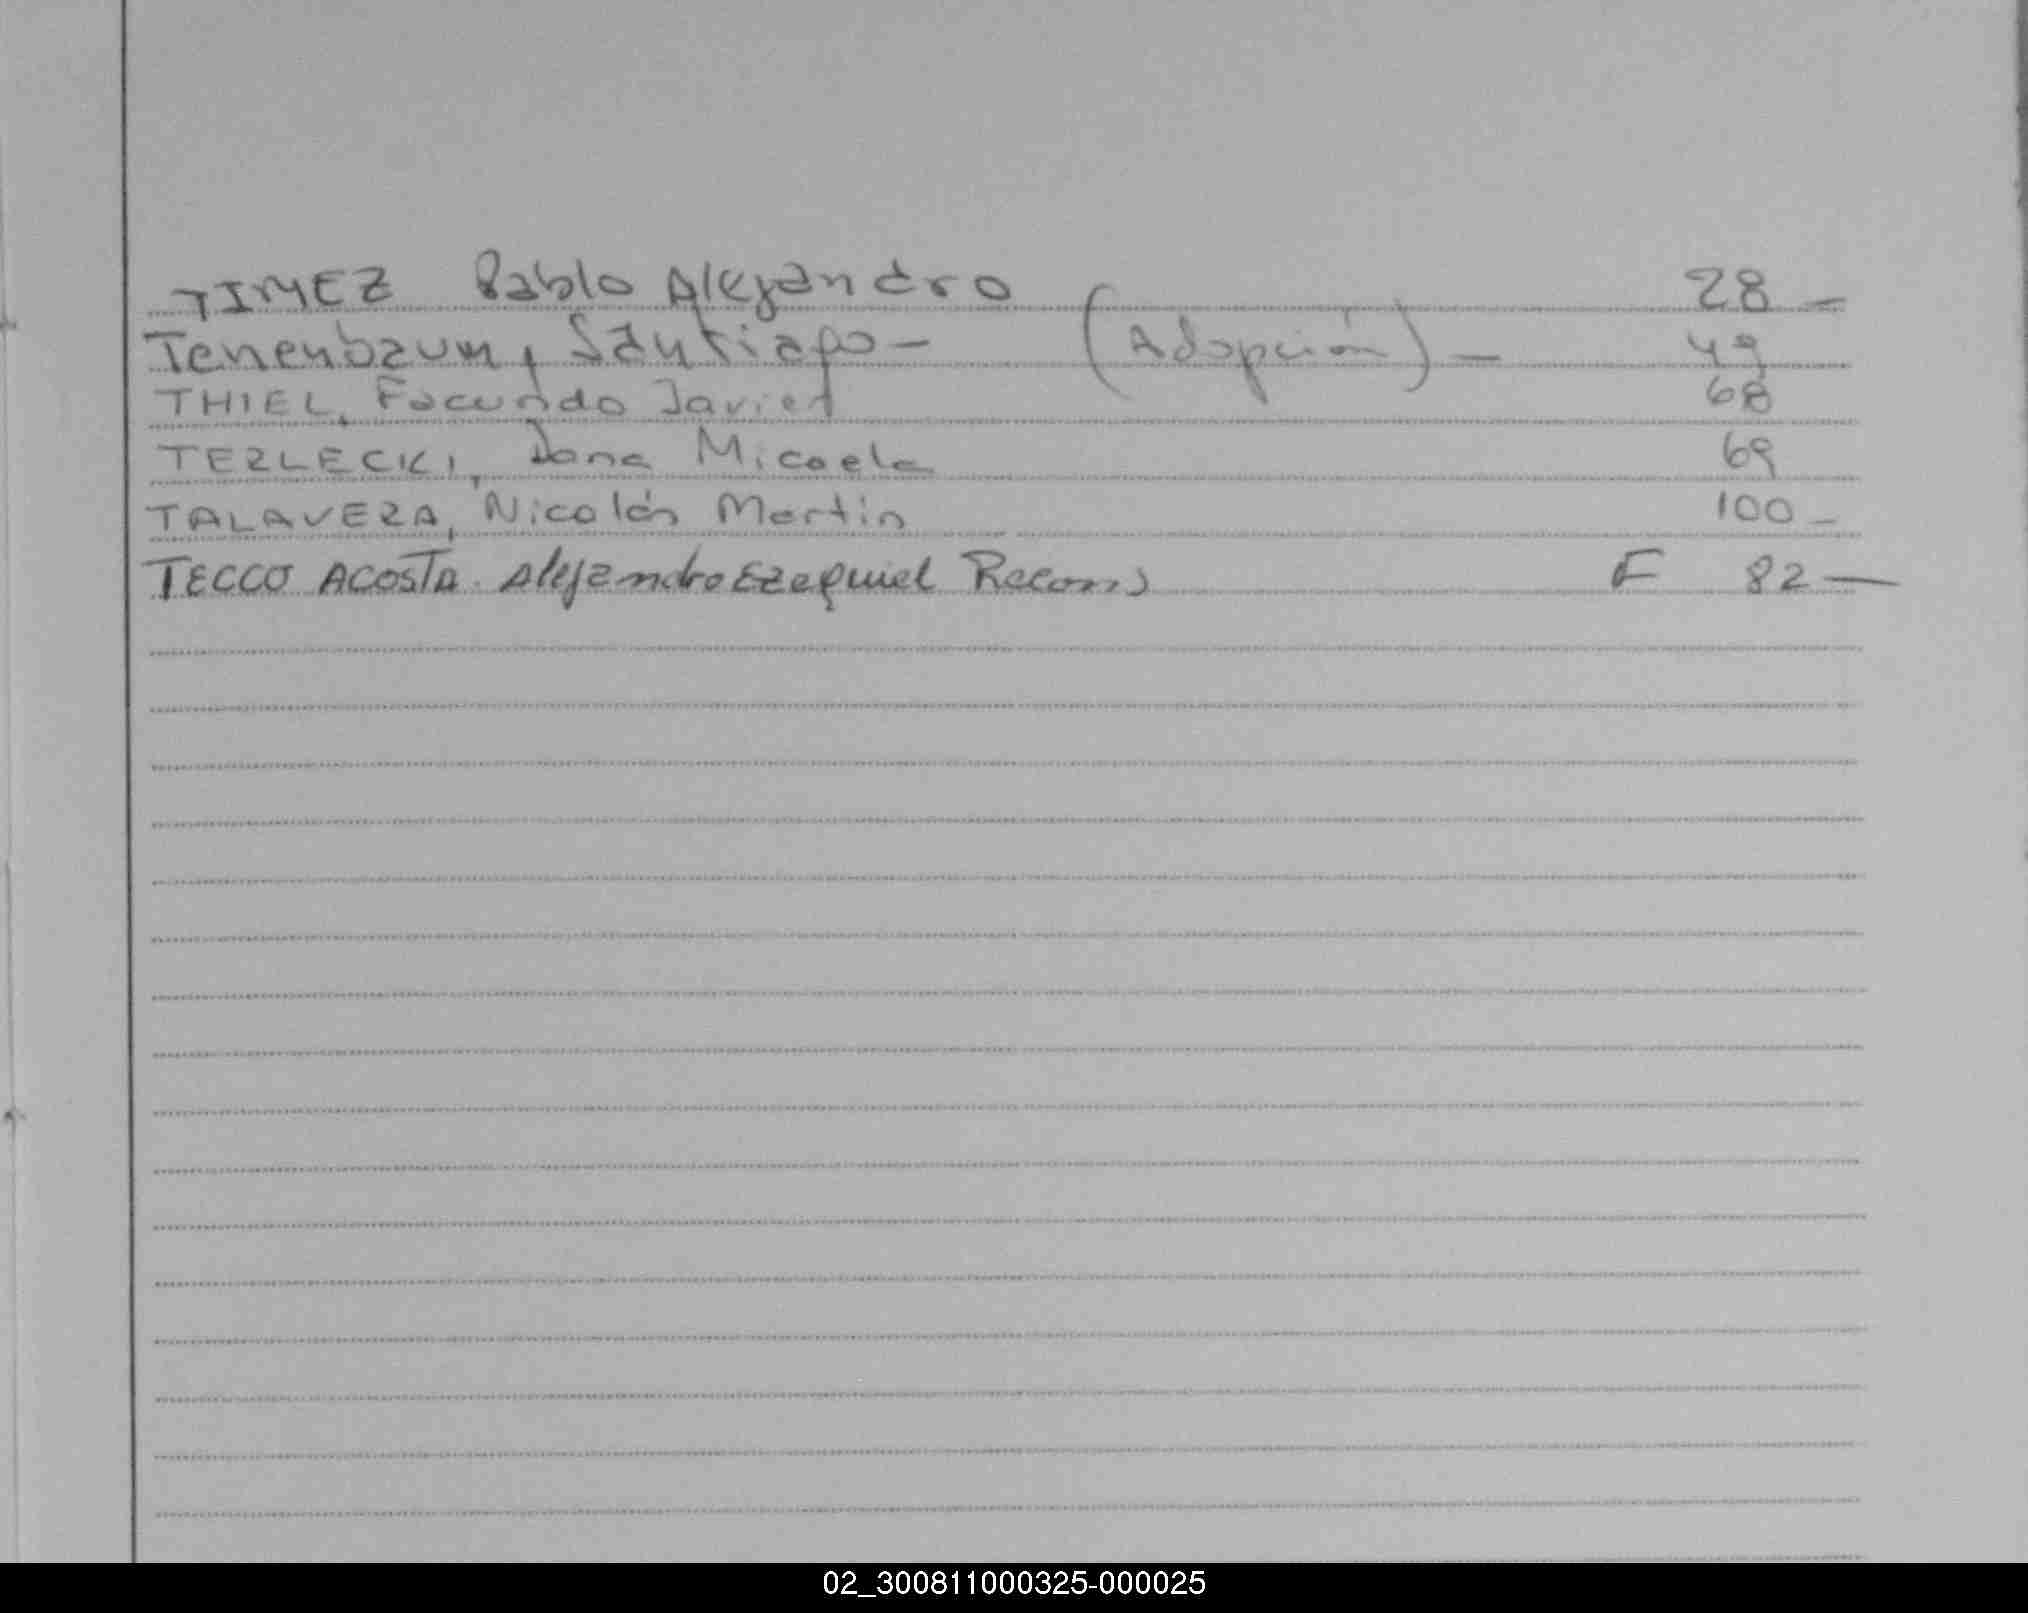 TIMEZ Pablo Alejandro 28 -
Tenenbaum, Santiago - (Adopción) - 49
THIEL, Facundo Javier 68
TERLECKI, Dana Micaela 69
TALAVERA, Nicolás Martin 100 -
TECCO ACOSTA. Alejandro Ezequiel Recons F 82 -
02_300811000325-000025